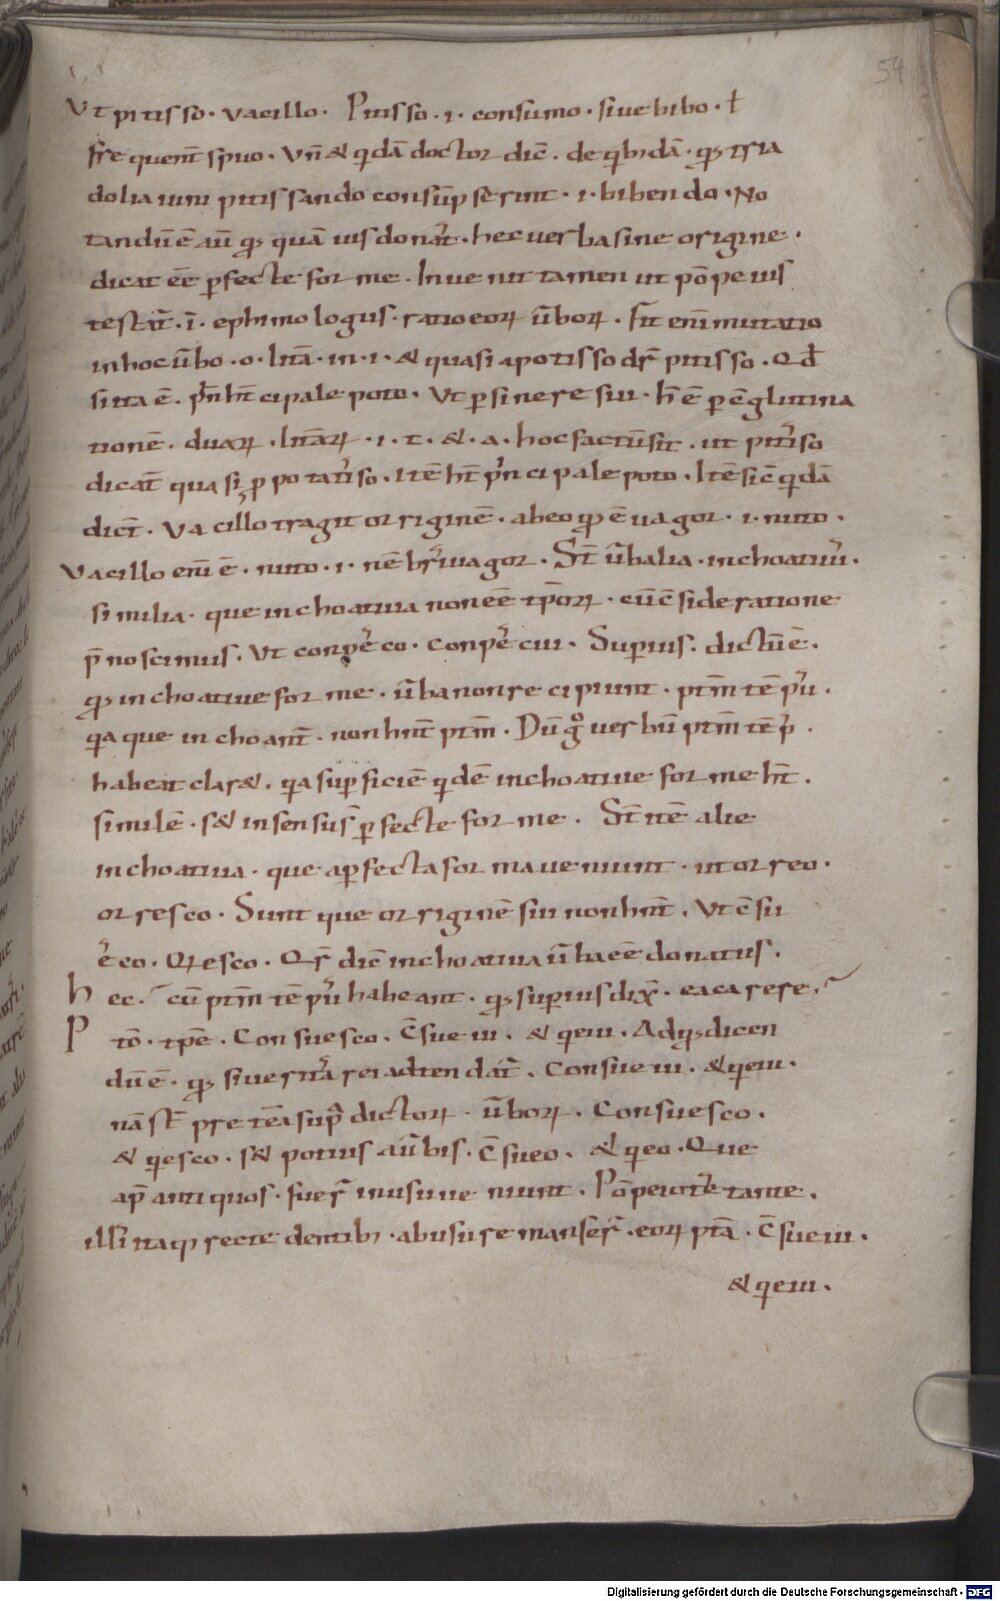 54
Vt pitisso. vacillo. Pitisso .i. consumo. sive bibo. ł
frequent̄ spuo. Vn̄ & qdā doctor dic̄. de qbdā. qꝫ tria
dolia uini pitissando consūpserint .i. bibendo. No
tandū ē aū qꝫ quā uis donat̄. hec uerba sine origine.
dicat eē ꝑfecte forme. Inuenit tamen ut pōpeius
testat̄ .i. ephimologus. ratio eoꝝ ūboꝝ. Fit enī mutatio
in hoc ūbo .o. litā. in .i. & quasi a potisso dr̄ pitisso. Qd̄
si ita ē. p̄n ht̄ cipale poto. Vt ꝑ sineresiu. h̄ ē ꝑ cglutina
tionē. duaꝝ. litāꝝ .i. t. &. a. hoc factū sit. ut pitiso
dicat̄ quasi ꝓ potatiso. Itē ht̄ pncipale poto. Itē sic̄ qdā
dict̄. Vacillo tragit orriginē. ab eo qꝫ ē uagor .i. nuto.
Vacillo enī ē. nuto .i. mēbr̄ uagor. St̄ ūbalia. inchoatiu.
similia. que inchoatiua non eē tp̄oꝝ. cū c̄sideratione
p̄noscimus. Vt conpesco. conpescui. Superius. dictū ē.
qꝫ inchoatiue forme. ūba non recipiunt. ptm̄ tēp.
qa que inchoant̄. non hnt̄ ptm̄. Dū g̊ uerbū ptm̄ tēp.
habeat clar&. qa suꝑficiē qdē inchoatiue forme ht̄.
similē. s& in sensus ꝑfecte forme. St̄ itē alie
inchoatiua. que a ꝑfecta forma ueniunt. ut orreo.
orresco. Sunt que orriginē siu non hnt̄. Vt c̄su
ēco. Qesco. Qr̄ dic̄ inchoatiua ūba eē donatus.
hec. cū ptm̄ tēp habeant. qꝫ suꝑius dix̄. ea carere.
P tō. tpē. Consuesco. C̄sueui. & qeui. Ad qꝫ dicen
dū ē. qꝫ siue rita rei adtendat̄. Consueui. & qeui.
nā st̄ pretea sup dictoꝝ. ūboꝝ. Consuesco.
& qesco. s& potius a ūbis. C̄sueo. & qeo. Que
ap̄ antiquos. fuer̄ in usu ueniunt. Pōpeio tte tante.
illsi itaqꝫ recte dentibꝫ. ab usu remanser̄. eoꝝ ptā. C̄sueui.
& qeui.
Digitalisierung gefördert durch die Deutsche Forschungsgemeinschaft - DFG